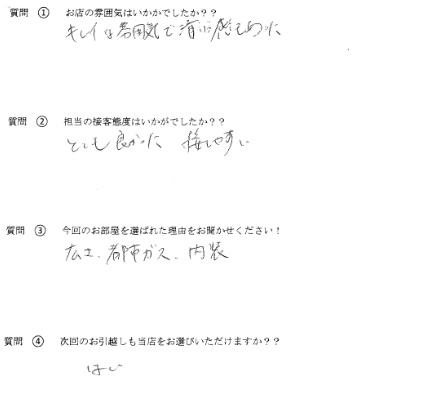 質問 ① お店の雰囲気はいかかでしたか？？
キレイな雰囲気で清潔感もあった
質問 ② 担当の接客態度はいかがでしたか？？
とても良かった 接しやすい
質問 ③ 今回のお部屋を選ばれた理由をお聞かせください！
広さ、都市ガス、内装
質問 ④ 次回のお引越しも当店をお選びいただけますか？？
はい